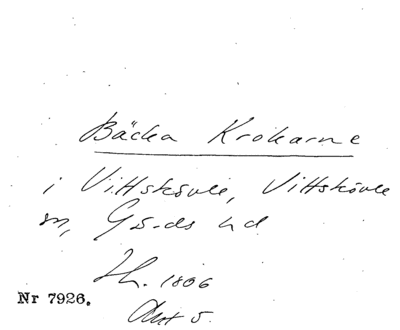 Bäcka Krokarne
i Vittskövle, Vittskövle
sn, Gärds hd
Sh. 1806
Akt 5.
Nr 7926.